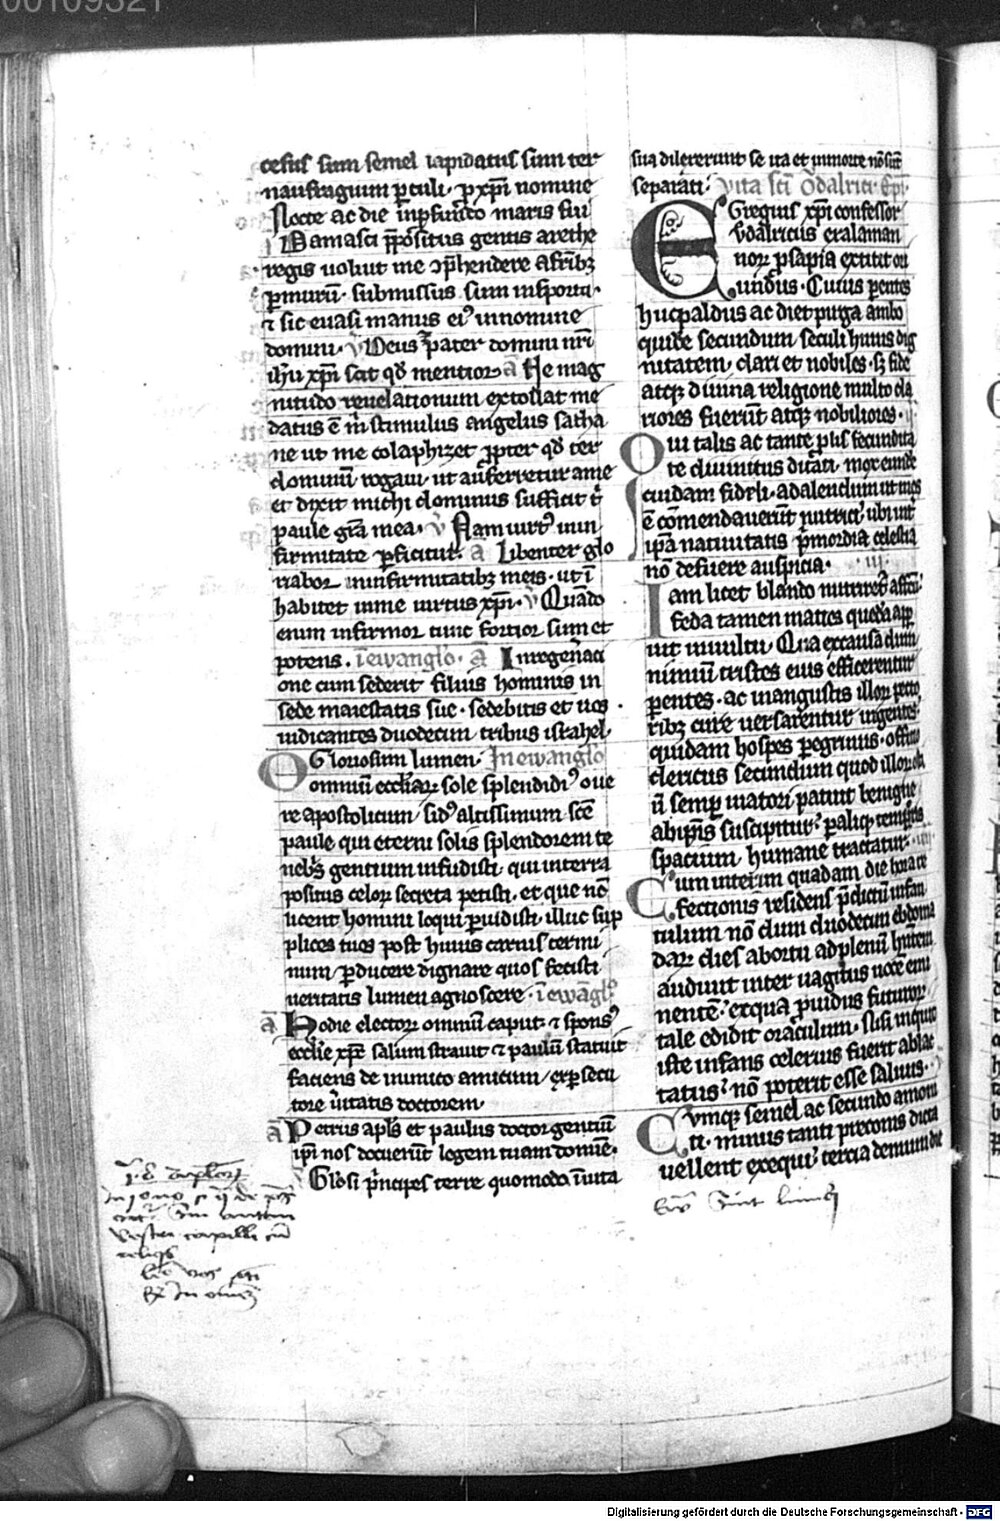 cesus sum semel lapidatus sum ter
naufragium ꝑtuli · ꝓ xp̄i nomine
Nocte ac die in ꝓfundo maris fui
Damasci p̄positus gentis arethe
regis uoluit me ꝯp̄hendere a frībꝫ
ꝑ murū · submissus sum in sporta ·
⁊ sic euasi manus eiꝰ in nomine
domini · v̄ Deus ⁊ pater domini nr̄i
ih̄u xp̄i scit qd̄ non mentior ā Ne mag
nitudo reuelationum extollat me
datus ē m̄ stimulus angelus satha
ne ut me colaphizet ꝓpter qd̄ ter
dominū rogaui · ut auferretur a me
et dixit michi dominus sufficit t̄
paule gr̄a mea · v̄ Nam uirtꝰ in in
firmitate ꝑficitur · ā Libenter glo
riabor in infirmitatibꝫ meis · ut ī
habitet in me uirtus xp̄i · v̄ Quādo
enim infirmor tunc fortior sum et
potens . ī ewanglo · ā In regen̄aci
one cum sederit filius hominis in
sede maiestatis sue · sedebitis et uos ·
iudicantes duodecim tribus israhel
O Gloriosum lumen · In ewanglo
omniū eccl̄iarꝫ sole splendidiꝰ oue
re apostolicum / sidꝰ altissimum sc̄e
paule qui eterni solis splendorem te
nebris gentium infudisti · qui in terra
positus celoꝝ secreta petisti · et que nō
licent homini loqui ꝑuidisti · illuc sup
plices tuos post huius carnis termi
num / ꝑducere dignare quos fecisti
ueritatis lumen agnoscere · ī ewāglꝰ
ā Hodie electoꝝ omniū caput · ⁊ sponsꝰ
eccl̄ie xp̄c saulum strauit ⁊ paulū statuit
faciens de inimico amicum / ex ꝑsecu
tore ūitatis doctorem ·
ā Petrus apl̄s et paulus doctor gentiū
ip̄i nos docuerūt legem tuam domīe ·
Glōsi p̄ncipes terre quomodo ī uita
sua dilexerunt se ita et in morte nō sūt
separati · Vita sc̄i Ōdalrici Ep̄i ·
Egregius xp̄i confessor
Vdalricus ex alaman
noꝝ ꝓsapia extitit ori
undus · Cuius ꝑentes
hucpaldus ac dietpirga ambo
quidē secundum seculi huius dig
nitatem / clari et nobiles · sꝫ fide
atqꝫ diuina religione multo cla
riores fuerūt atqꝫ nobiliores ·
Qui talis ac tante ꝓlis fecundita
te diuinitus ditāti · mox eunde
cuidam fideli · ad alendum ut mos
ē comendauerūt nutrici / ubi int̄
ip̄a natiuitatis p̄mordia celestia
nō defuere auspicia · iii
Iam licet blando nutriret᷑
feda tamen macies quedā app
uit in uultu · Qua ex causa dum
nimiū tristes eius efficerentur
ꝑentes · ac in angustis illoꝝ pecto
ribꝫ cure uersarentur ingentes
quidam hospes ꝑegrinus · officio
clericus secundum quod illoꝝ
ū semꝑ uiatori patuit benigne
ab ip̄is suscipitur · ꝑ aliqꝰ temporis
spacium / humane tractatur ·
Cum interim quadam die
fectionis residens p̄dictū infan
tulum nō dum duodecim ebdoma
darꝫ dies ab ortu ad plenū hn̄tem
audiuit inter uagitus uocē emi
nentē · ex qua ꝓuidus futuroꝝ
tale edidit oraculum · Nisi inquit
iste infans celerius fuerit ablac
tatus · nō poterit esse saluus ·
Cumqꝫ semel ac secundo amoni
ti · minus tanti preconis dicta
uellent exequi · tercia demum die